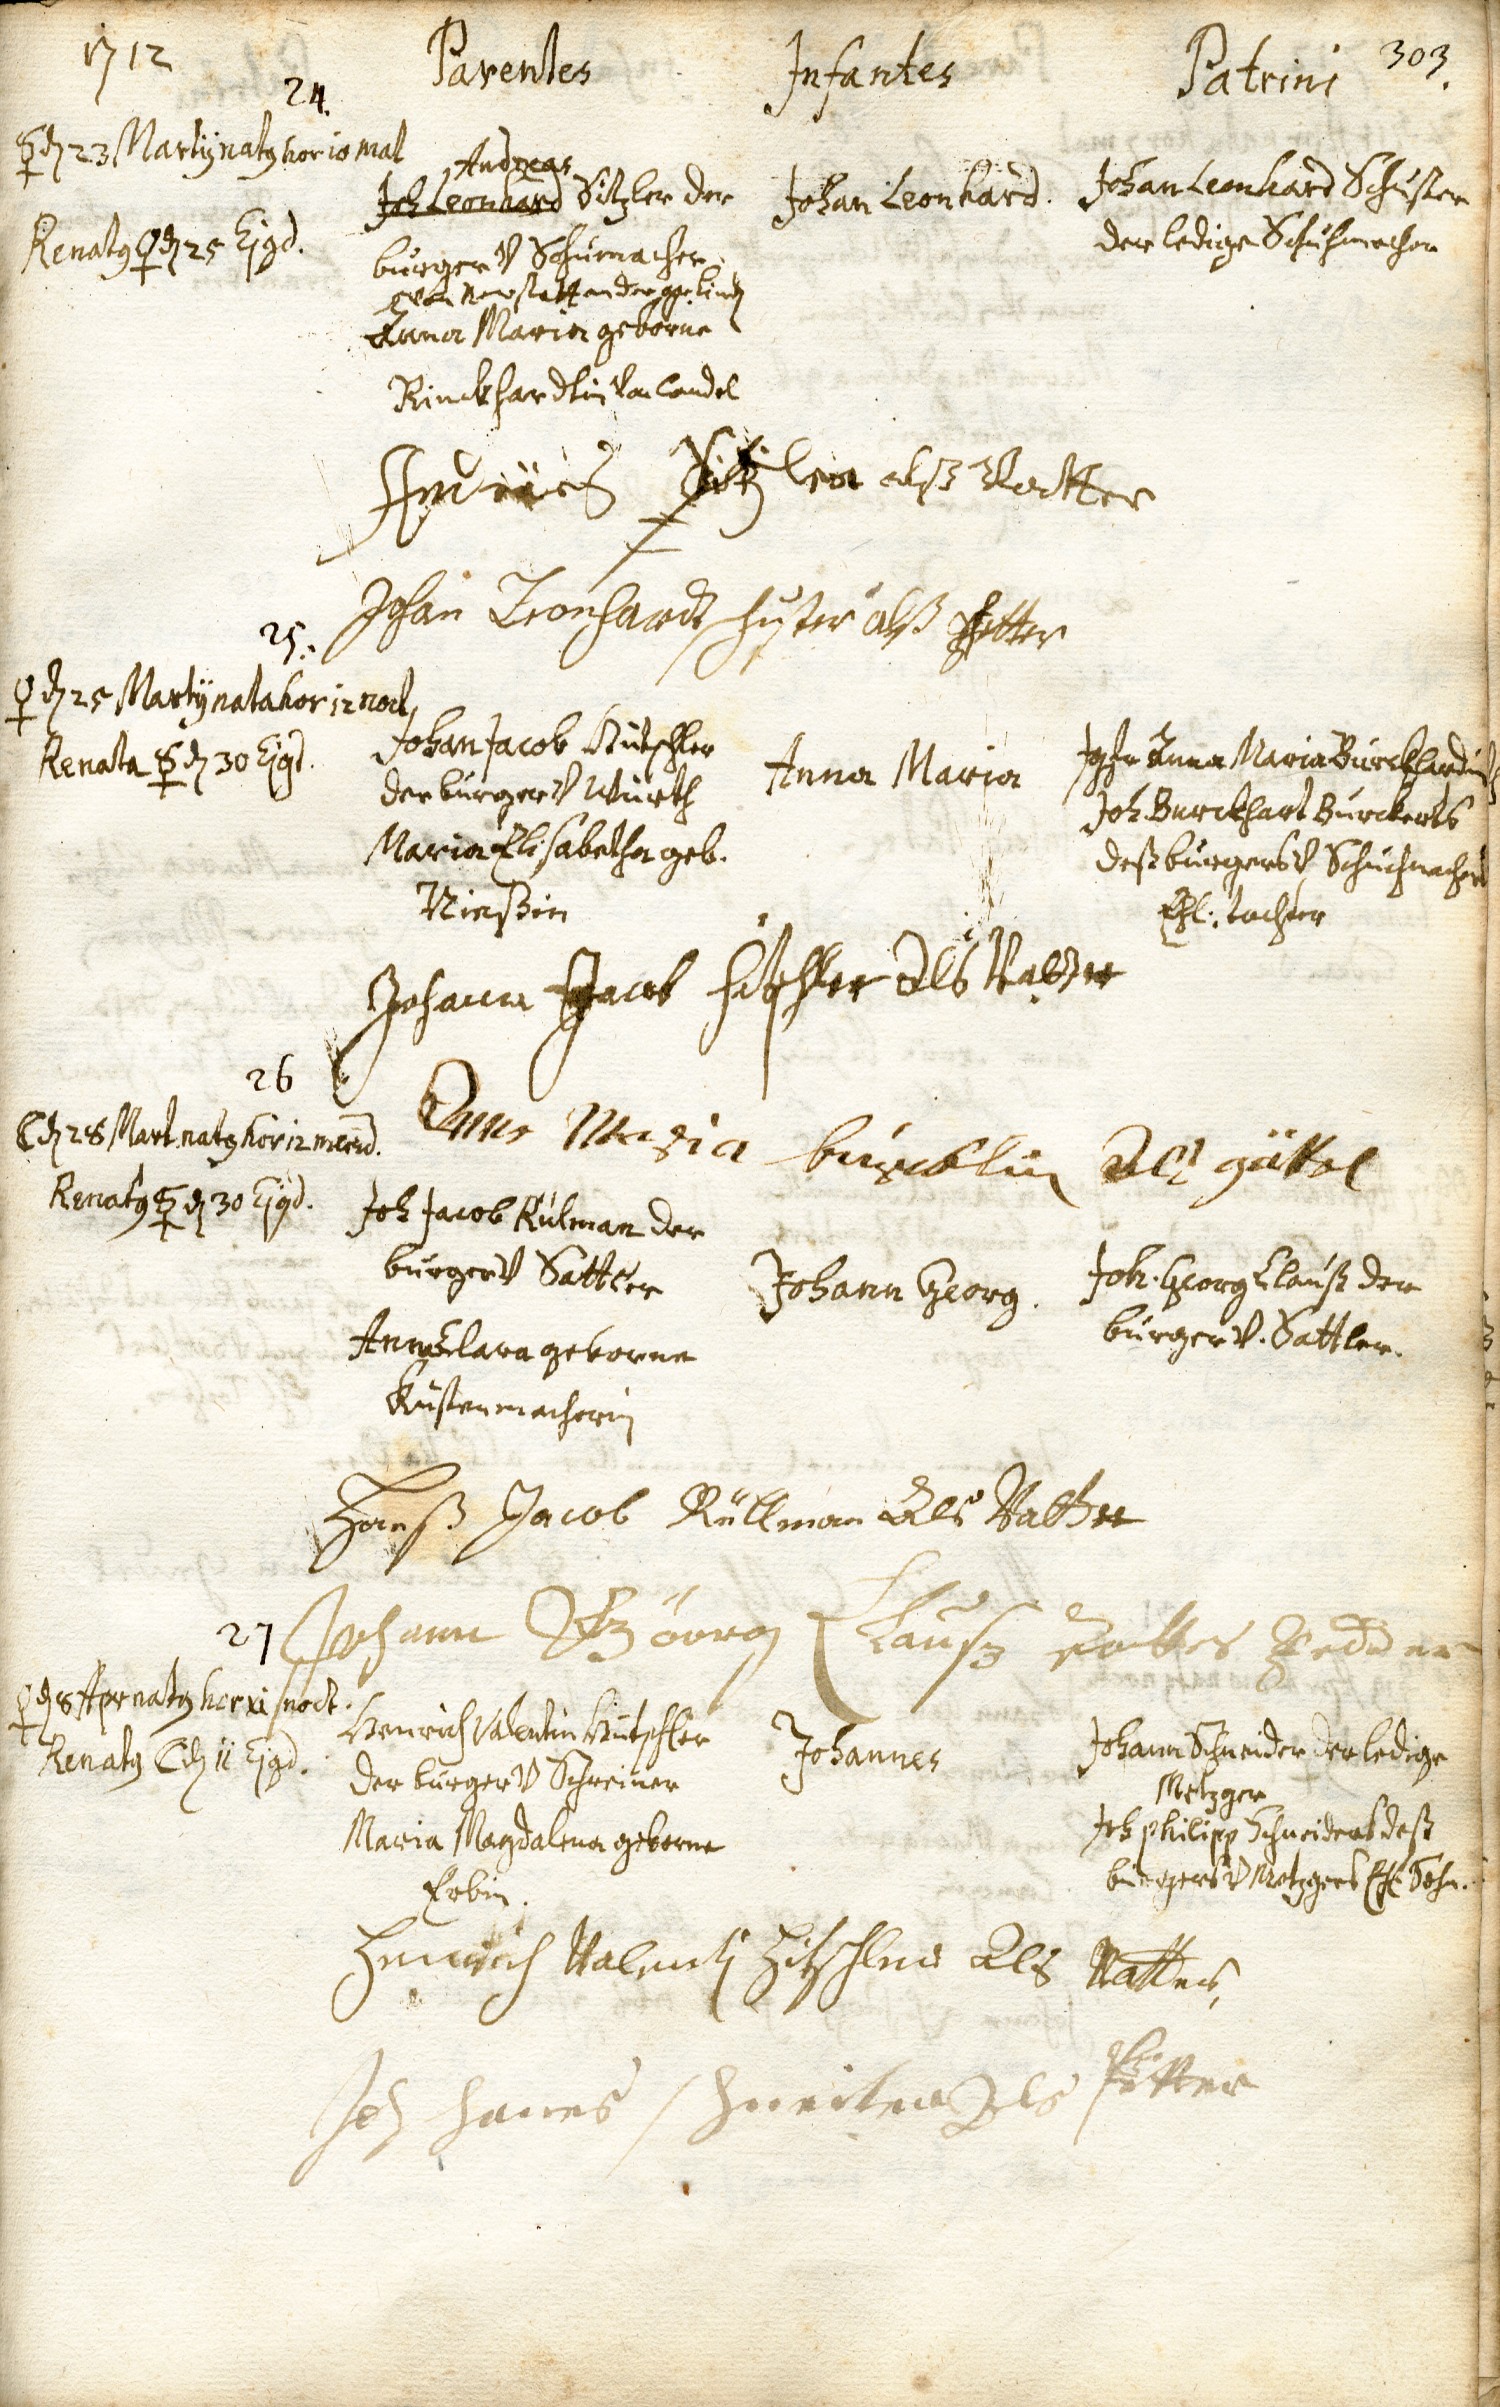 1712 Parentes Infantes Patrini 303.
24.
☿ d. 23 Martij natus hor 10 mat
Renatus ♀ d 25 Ejusd.
Andreas
Joh Leonhard Sitzler der
burger v Schumacher
Anna Maria geborne
Rinckhardtin von Landel
Johan Leonhard.
Johan Leonhard Schuster
der ledige Schuhmacher
Andreas Sitzler alß Vatter
Johan Leonhardt schuster alß Petter
25.
♀ d 25 Martij nata hor 12 noct,
Renata ☿ d 30 Ejusd.
Johan Jacob Hütschler
der burger v Würth
Maria Elisabetha geb.
Nießin
Anna Maria
Jgfr Anna Maria Burckhardin
Joh Burckhart Burckerts
deß burgers v Schuhmachers
Ehl: tochter
Johann Jacob hitschler Als Vatter
26
☾ d 28 Mart natus hor 12 merid.
Renatus ☿ d 30 Ejusd.
Anna Maria burcklin Als göttel
Joh Jacob Rülman der
burger v Sattler
Anna Clara geborne
Küstenmacherin
Johann Georg.
Joh. Georg Clauß der
burger v. Sattler.
Hanß Jacob Rüllman Als Vatter
27
Johann Göorg Clausz Pedder
♀ d 8 Apr natus hor xi noct.
Renatus ☾ d 11 Ejusd.
Henrich Valentin Hütschler
der burger v Schreiner
Maria Magdalena geborne
Erbin.
Johannes
Johann Schneider der ledige
Metzger
Joh philipp Schneiders deß
burgers v Metzgers Ehl Sohn.
Henrich Valentin Hitschler Als Vatter,
Joh hanes schneiter Als Petter